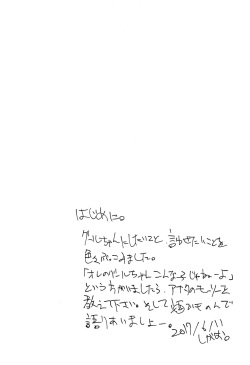 はじめに。
グールちゃんにしたいこと、言わせたいことを
色々つめこみました。
「オレのグールちゃんこんな子じゃねーよ」
という方がいましたら、アナタのモノを
教えて下さい。そして
語りあいましょー。2017/6/11